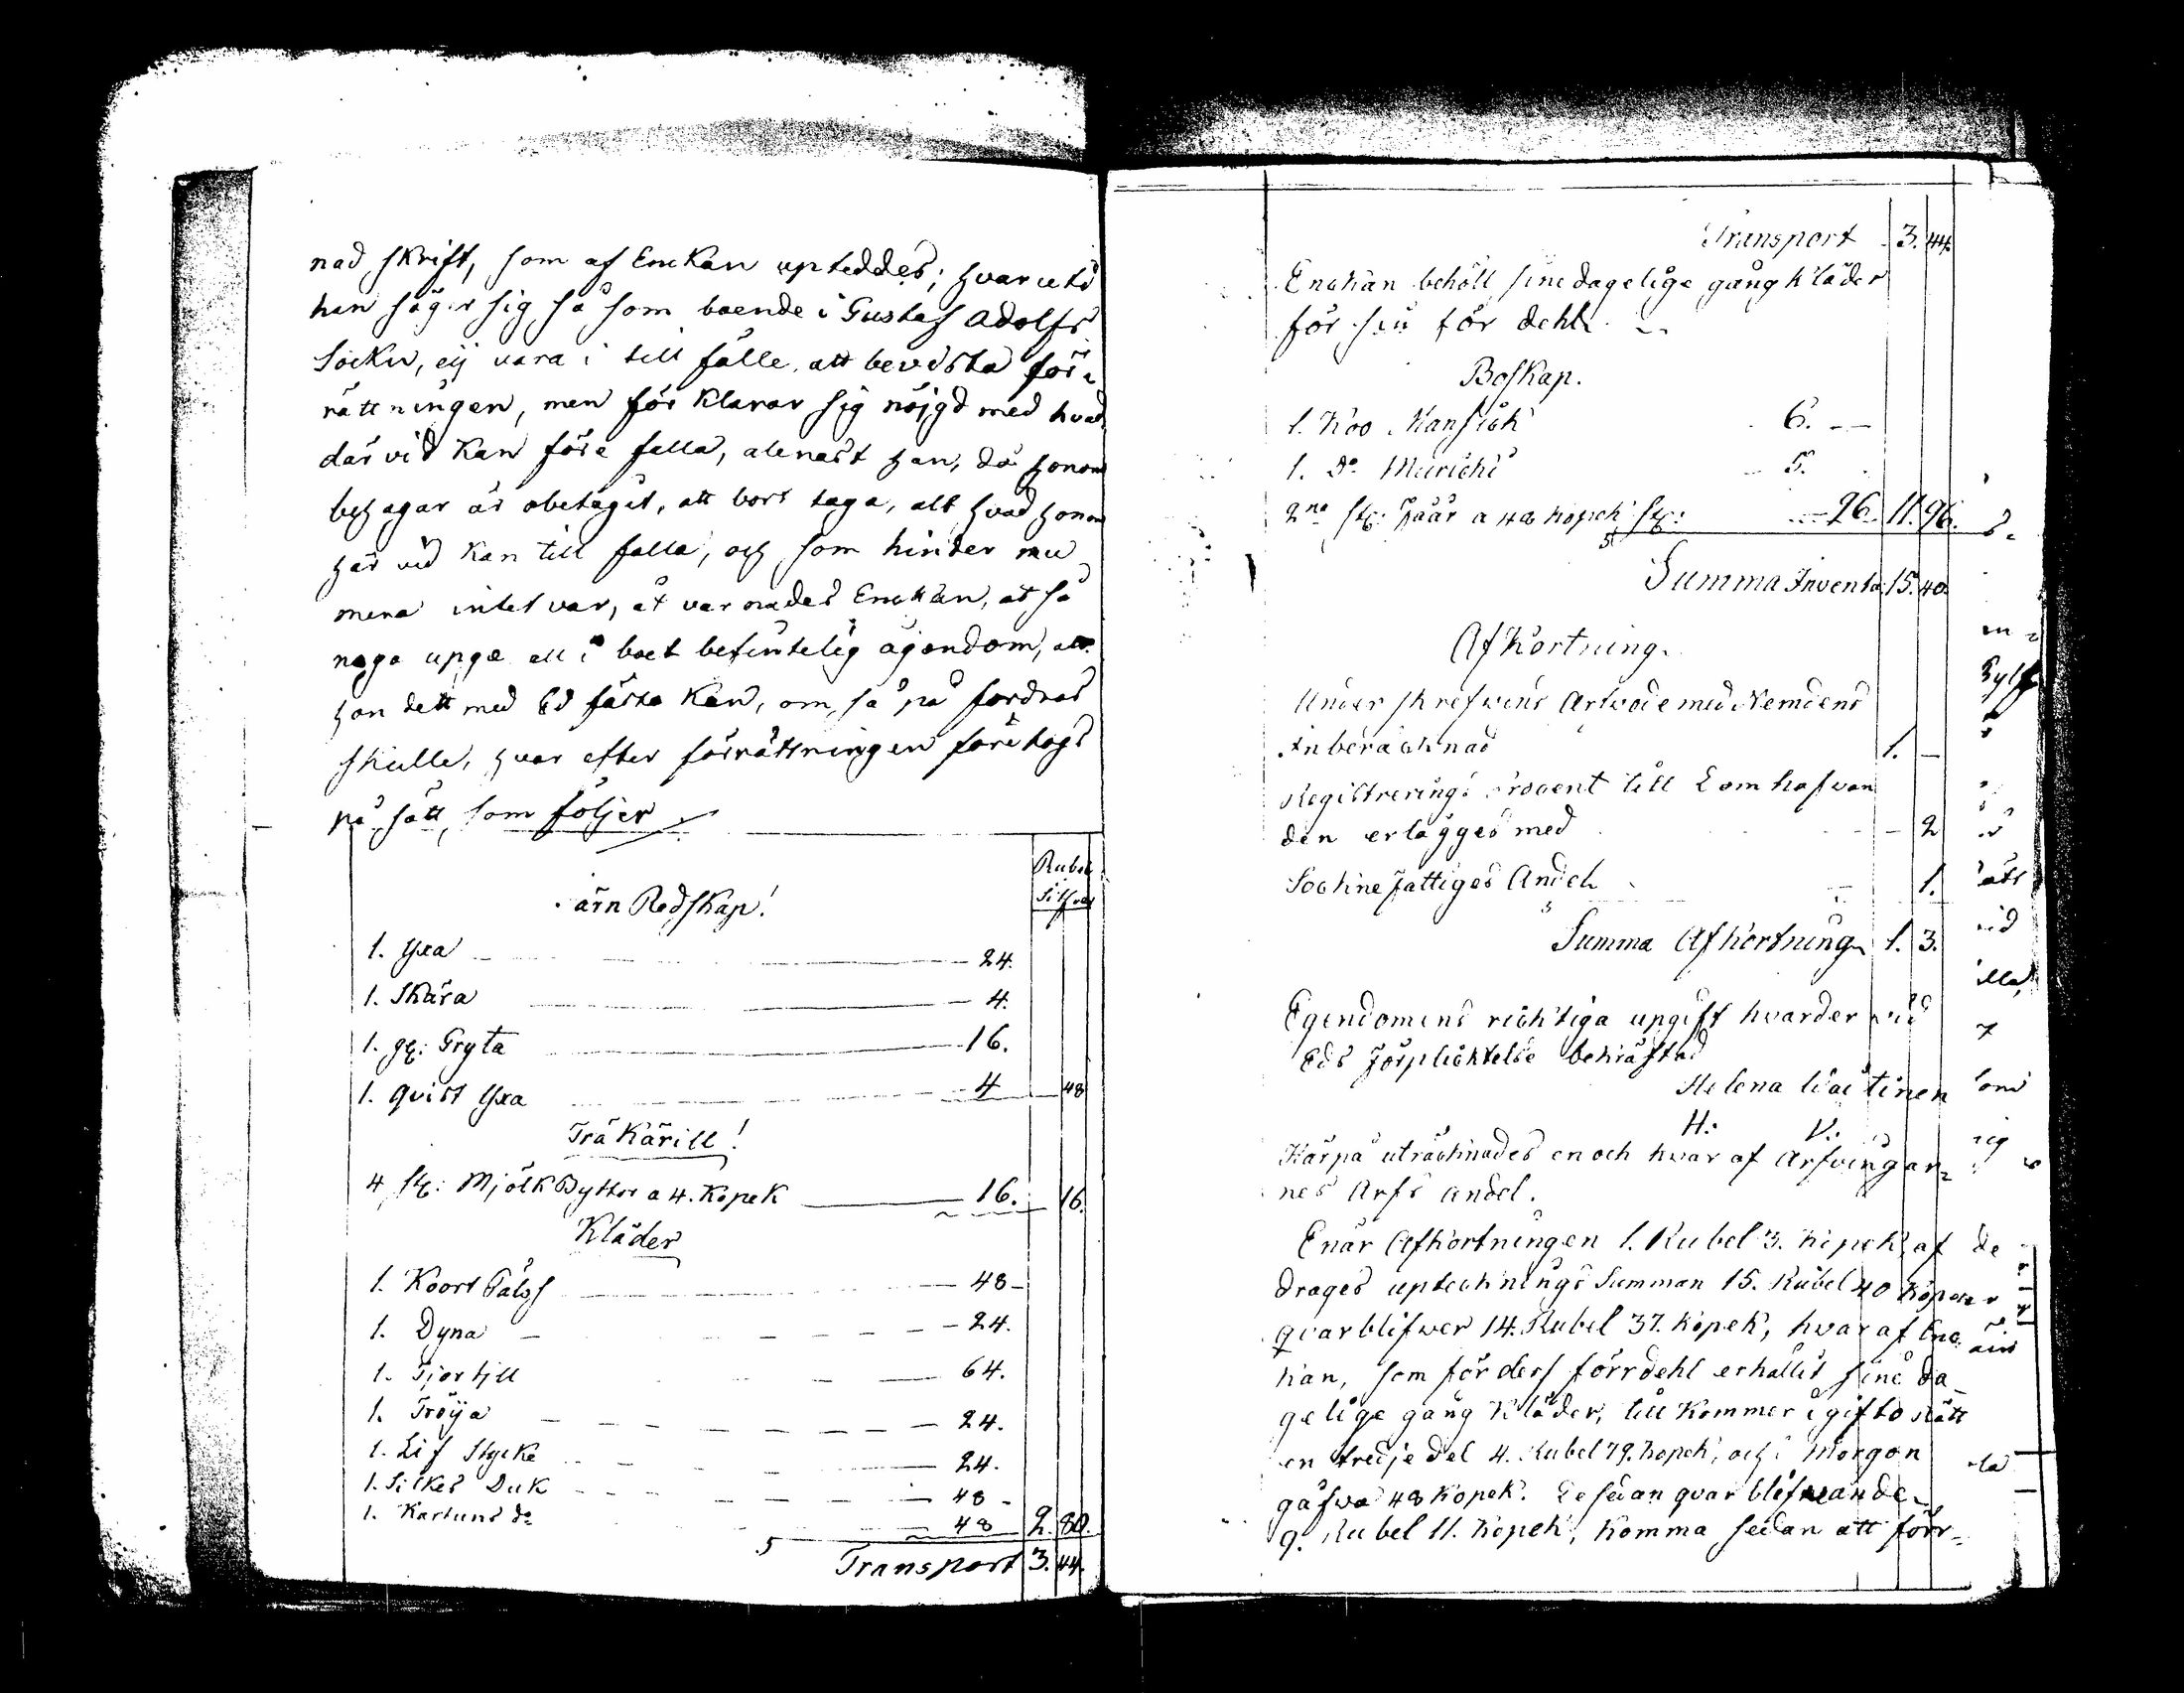 nad skrift, som af Enckan upteddes; hvaruti
han säger sig så som boende i Gustaf Adolfs
Sockn, eij vara i till fälle att bevista före
rättningen, men för klarar sig nöjgd med hvad
där vid kan före falla, alenast han, då honom
behagar är obetagit, att bort taga, alt hvad honom
här vid kan till falla, och som hinder nu
mera intet var, åt varnades Enckan, at så
noga upge all i boet befintelig ägendom, att
hon dett med Ed fästa kan, om så på fordras
skulle, hvar efter förrättningen företogs
på sätt, som följer
Rubel
Silfver
Järn Redskap!
1. Yxa 24.
1. Skära 4.
1. gl: Gryta 16.
1. qvist Yxa 4 48
Trä Kärill!
4 st: Mjölk Byttor a 4. Kopek 16. 16.
Kläder
1. Koort Pälss 48
1. Dyna 24.
1. Tjortjll 64.
1. Tröija 24.
1. Lif Stycke 24.
1. Silkes Duk 48
1. Kartuns do 48 2. 80.
Transport 3. 44.
Transport 3. 44.
Enckan behöll sine dagelige gång kläder
för sin för dehl.
Boskap.
1. Koo Mansick 6.
1. do Muricki 5.
2ne st: Fåår a 48 kopek st: 96 11. 96.
Summa Invento 15. 40.
Afkortning.
Under skrefwens Arfwode med Nemdens
Inberäcknad 1. —
Registrerings Procent till Lomhafwan
den erlägges med 2
Sockne fattiges Andel 1.
Summa Afkortning 1. 3.
Egendomens ricktiga upgift hvarder vid
Eds förplicktelse bekräftad
Helena Wäitinen
H. V.
Härpå uträcknades en och hvar af Arfvingar-
nes Arfs andel.
Enär Afkortningen 1. Rubel 3. kopek af
drages uptecknings Summan 15. Rubel 40 kopek
qvarblifwer 14. Rubel 37. kopek, hvar af Enc
kan, som för dess förrdehl erhållit sine da
gelige gång kläder, till kommer i gifto rätt
en tredje del 4. Rubel 79. kopek, och i Morgon
gåfva 48 kopek. De sedan qvar blifwande
9. Rubel 11. kopek, komma sedan att förr-